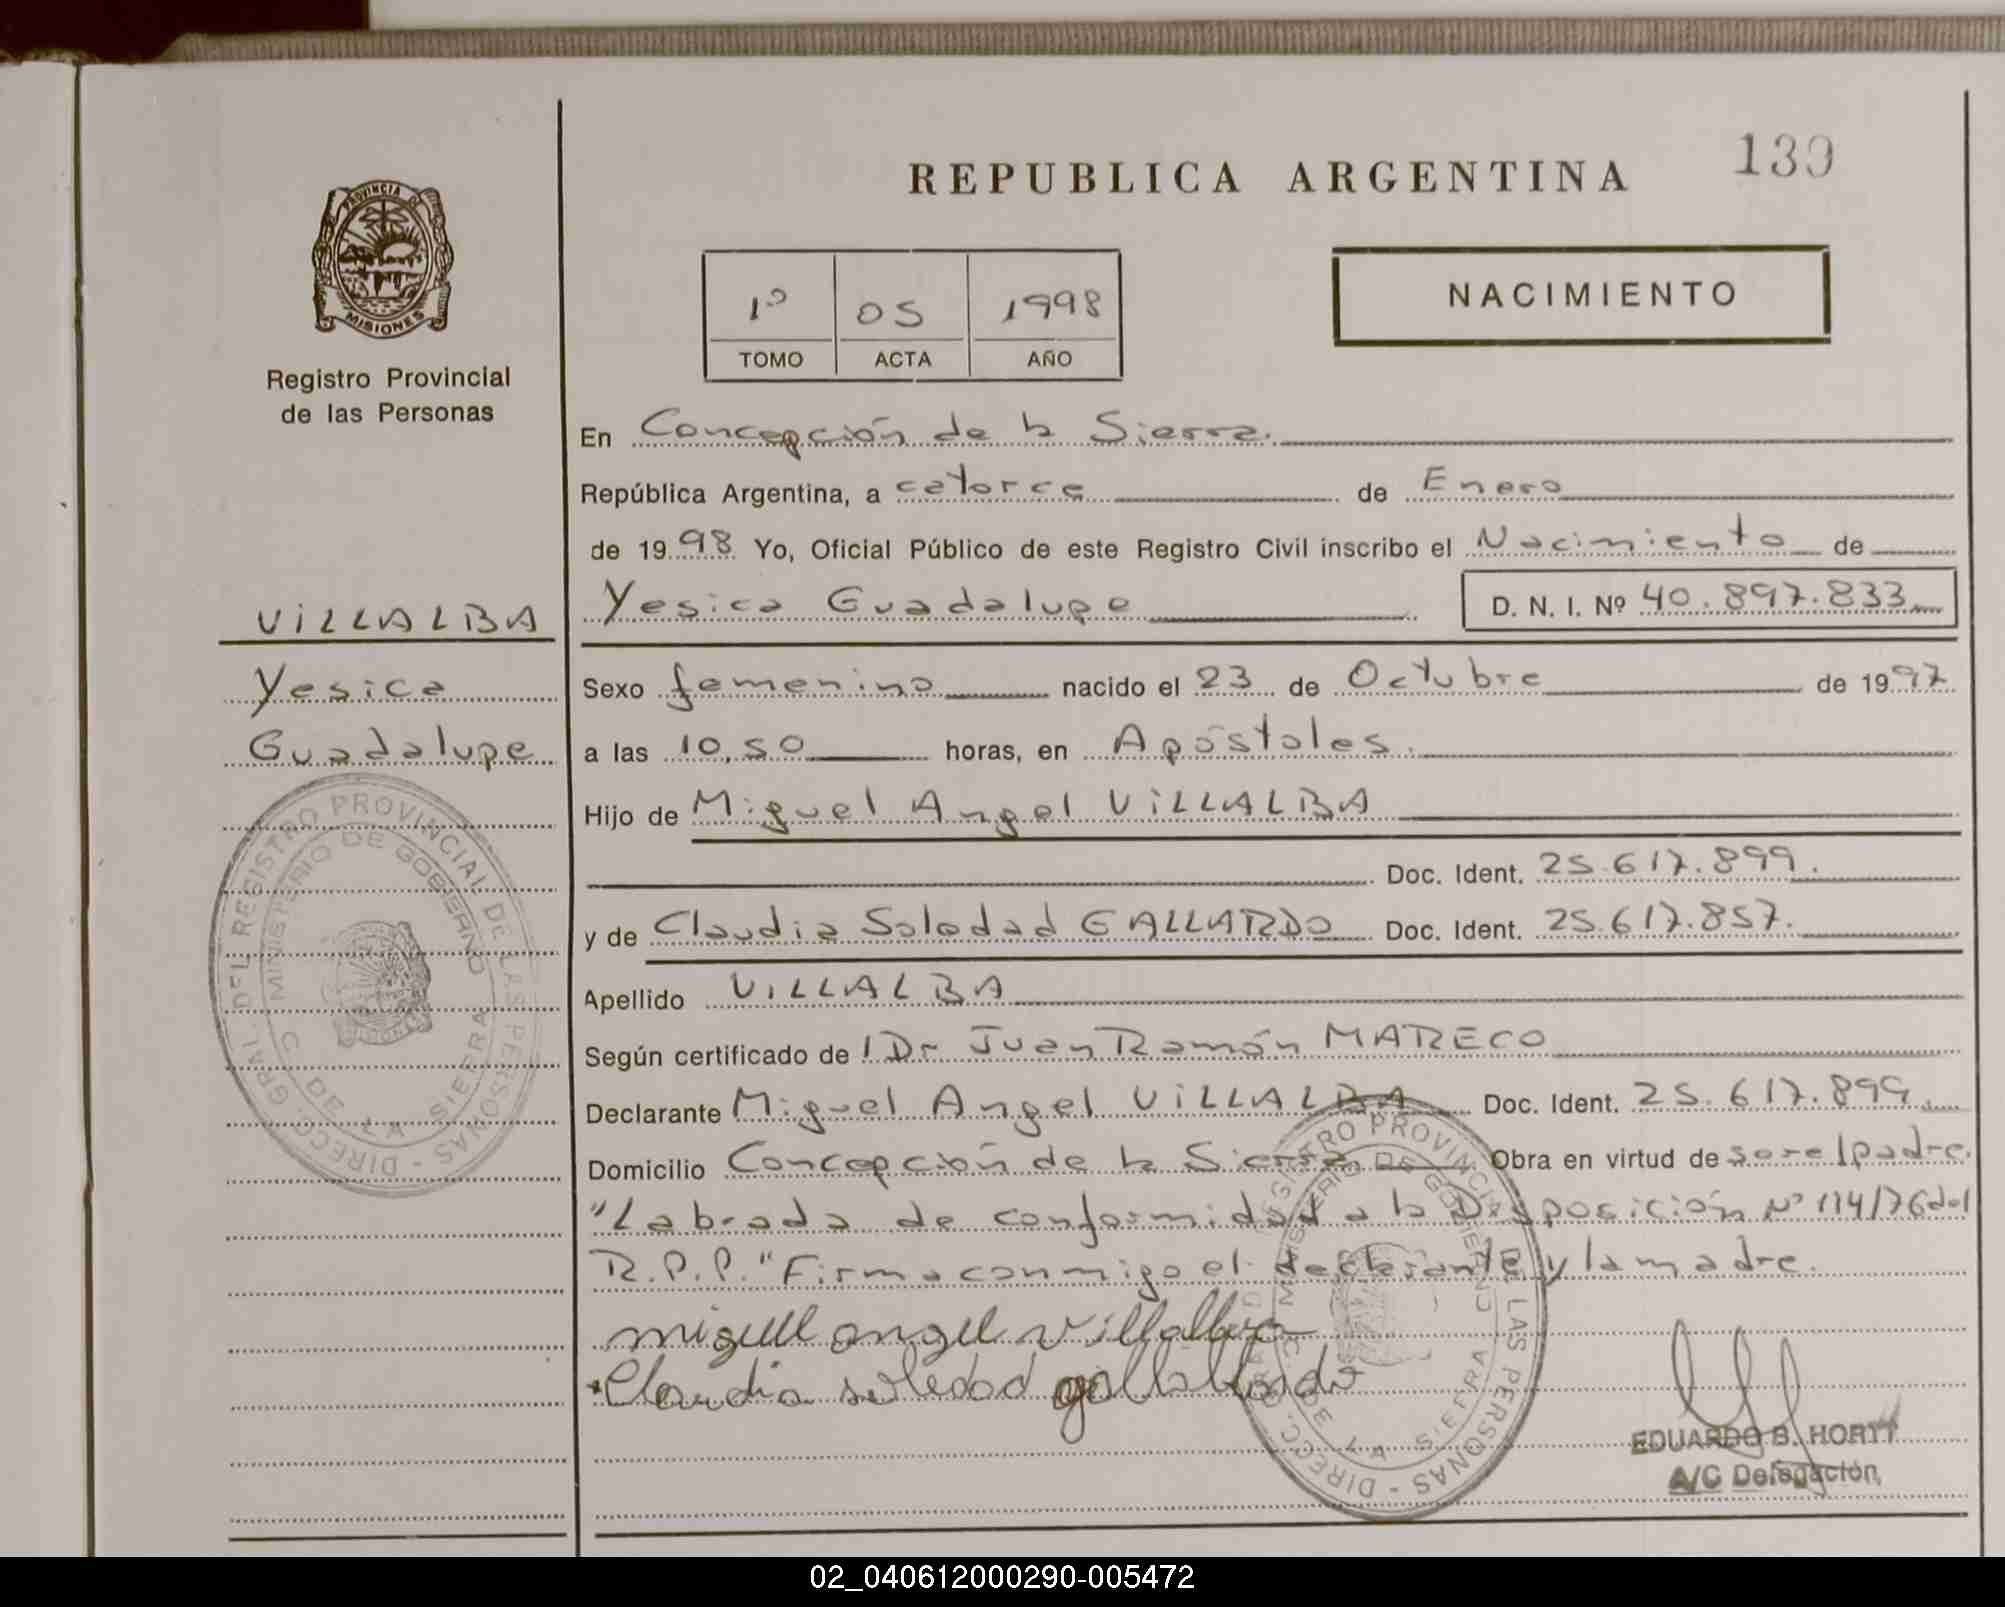 REPUBLICA ARGENTINA
139
PROVINCIA DE
MISIONES
Registro Provincial
de las Personas
1º 05 1998
TOMO ACTA AÑO
NACIMIENTO
En Concepción de la Sierra.
República Argentina, a catorce de Enero
de 1998 Yo, Oficial Público de este Registro Civil inscribo el Nacimiento de
Yesica Guadalupe D. N. I. Nº 40.897.833
VILLALBA
Yesica
Guadalupe
Sexo femenino nacido el 23 de Octubre de 1997
a las 10,50 horas, en Apóstoles.
Hijo de Miguel Angel VILLALBA
Doc. Ident. 25.617.899.
y de Claudia Soledad GALLARDO Doc. Ident. 25.617.857.
Apellido VILLALBA
Según certificado del Dr Juan Ramón MARECO
Declarante Miguel Angel VILLALBA Doc. Ident. 25.617.899.
Domicilio Concepción de la Sierra Obra en virtud de ser el padre.
"Labrada de conformidad a la Disposición Nº 114/76 del
R.P.P." Firma conmigo el declarante y la madre.
miguel angel villalba
Claudia soledad
EDUARDO B. HORTT
A/C Delegación
DIRECC. GRAL. DEL REGISTRO PROVINCIAL DE LAS PERSONAS
MINISTERIO DE GOBIERNO
C. DE LA SIERRA
DIRECC. GRAL. DEL REGISTRO PROVINCIAL DE LAS PERSONAS
MINISTERIO DE GOBIERNO
C. DE LA SIERRA
02_040612000290-005472